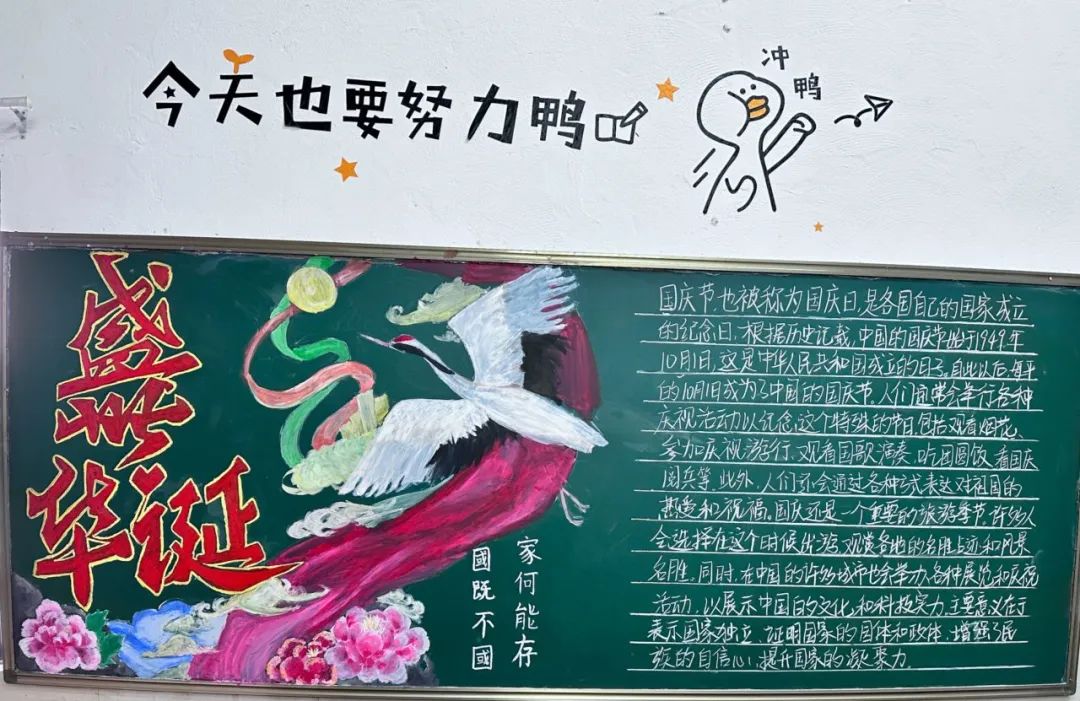 今天也要努力鸭
冲
鸭
盛世
华诞
國既不國
家何能存
国庆节,也被称为国庆日,是各国自己的国家成立
的纪念日,根据历史记载,中国的国庆节始于1949年
10月1日,这是中华人民共和国成立的日子。自此以后,每年
的10月1日成为了中国的国庆节。人们通常会举行各种
庆祝活动以纪念这个特殊的节日包括观看烟花、
参加庆祝游行、观看国歌演奏、吃团圆饭、看国庆
阅兵等,此外,人们还会通过各种方式表达对祖国的
热爱和祝福。国庆还是一个重要的旅游季节,许多人
会选择在这个时候出游,观赏各地的名胜古迹和风景
名胜。同时,在中国的许多城市也会举办各种展览和庆祝
活动,以展示中国的文化和科技实力。主要意义在于
表示国家独立,证明国家的国体和政体,增强了民
族的自信心,提升国家的凝聚力